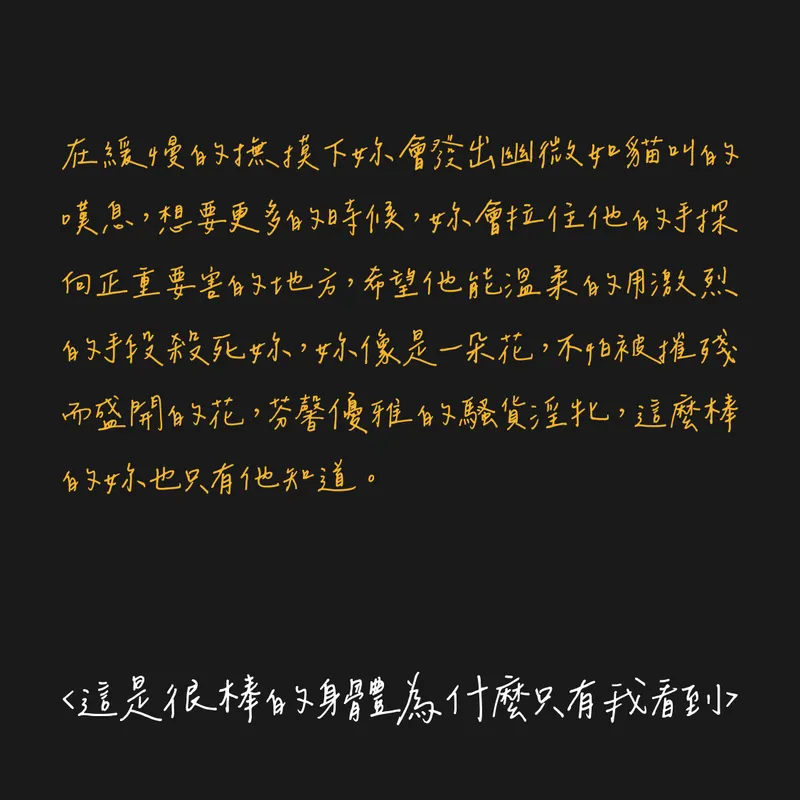 在緩慢的撫摸下妳會發出幽微如貓叫的
嘆息，想要更多的時候，妳會拉住他的手探
向正重要害的地方，希望他能溫柔的用激烈
的手段殺死妳，妳像是一朵花，不怕被摧殘
而盛開的花，芬馨優雅的騷貨淫牝，這麼棒
的妳也只有他知道。
<這是很棒的身體為什麼只有我看到>